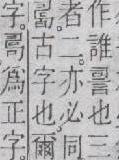 作誰也三
者二。亦同
古字也。爾
字。爲正字。